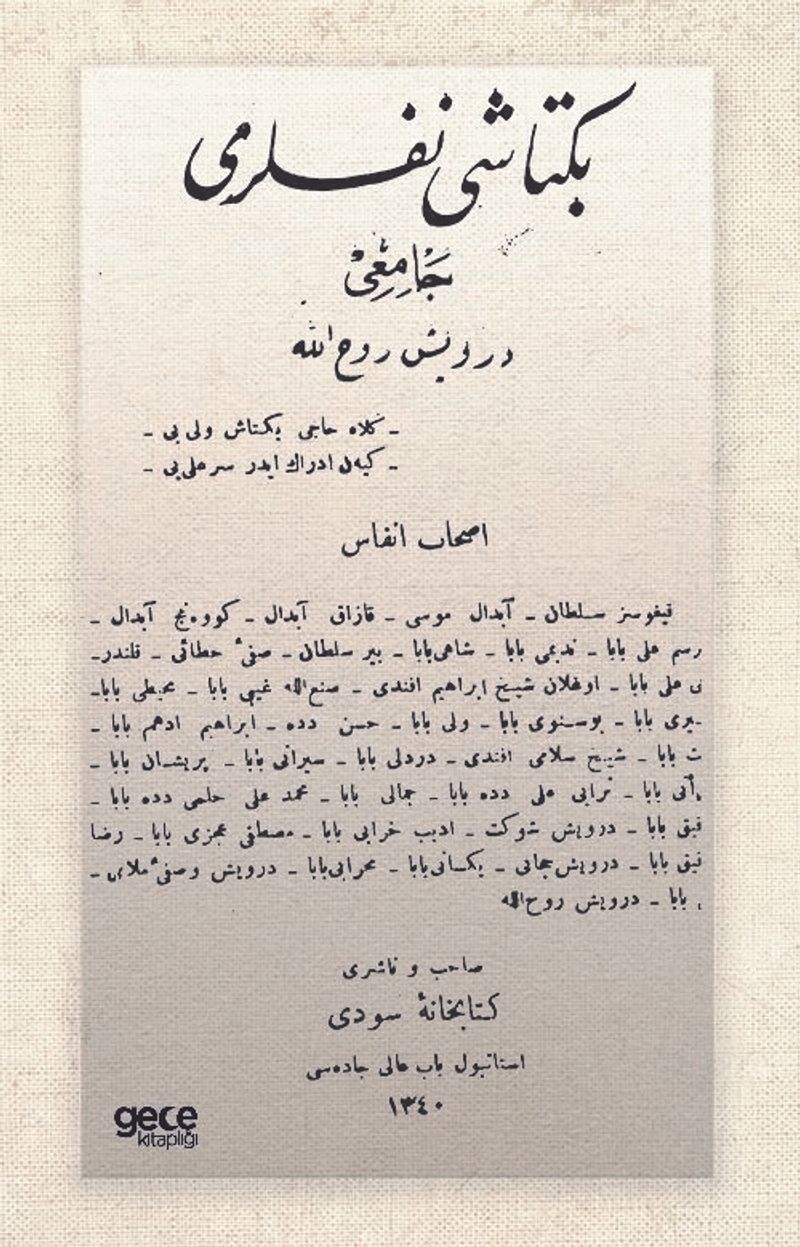 بكتاشی نفسلری
جامعی
درویش روح الله
ـ كلاه حاجی بكتاش ولی یی ـ
ـ كیه‌ن ادراك ایدر سر علی یی ـ
اصحاب انفاس
قیغوسز سلطان ـ آبدال موسی ـ قازاق آبدال ـ آبدال ـ
رسم علی بابا ـ ندیمی بابا ـ شاهی بابا ـ پیر سلطان ـ صفیٔ خطائی ـ قلندر ـ
ی علی بابا ـ اوغلان شیخ ابراهیم افندی ـ صنع الله غیبی بابا ـ محیطی بابا ـ
یری بابا ـ بوسنوی بابا ـ ولی بابا ـ حسن دده ـ ابراهیم ادهم بابا ـ
ت بابا ـ شیخ سلامی افندی ـ دردلی بابا ـ سیرانی بابا ـ پریشان بابا ـ
أتی بابا ـ ترابی علی دده بابا ـ جمالی بابا ـ محمد علی حلمی دده بابا ـ
فیق بابا ـ درویش شوكت ـ ادیب خرابی بابا ـ مصطفی عجزی بابا ـ رضا
فیق بابا ـ درویش ـ یكسانی بابا ـ محرابی بابا ـ درویش ـ
بابا ـ درویش روح الله
صاحب و ناشری
كتابخانهٔ سودی
استانبول باب عالی جاده‌سی
١٣٤٠
gece
kitaplığı